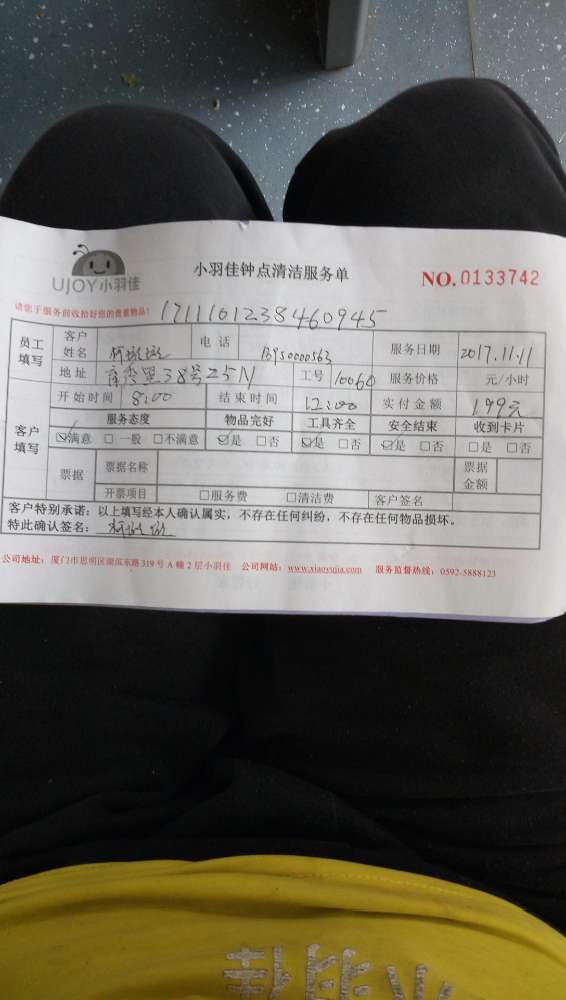 UJOY小羽佳
小羽佳钟点清洁服务单
NO. 0133742
请您于服务前收拾好您的贵重物品！
1711101238460945
员工填写 客户姓名 电话 服务日期 2017.11.11
地址 工号 10060 服务价格 元/小时
客户填写 开始时间 8:00 结束时间 12:00 实付金额 199元
服务态度 物品完好 工具齐全 安全结束 收到卡片
☑满意 □一般 □不满意 ☑是 □否 ☑是 □否 ☑是 □否 □是 □否
票据 票据名称 票据金额
开票项目 □服务费 □清洁费 客户签名
客户特别承诺：以上填写经本人确认属实，不存在任何纠纷，不存在任何物品损坏。
特此确认签名：
公司地址：厦门市思明区湖滨东路 319 号 A 幢 2 层小羽佳 公司网站：www.xiaoyujia.com 服务监督热线：0592-5888123